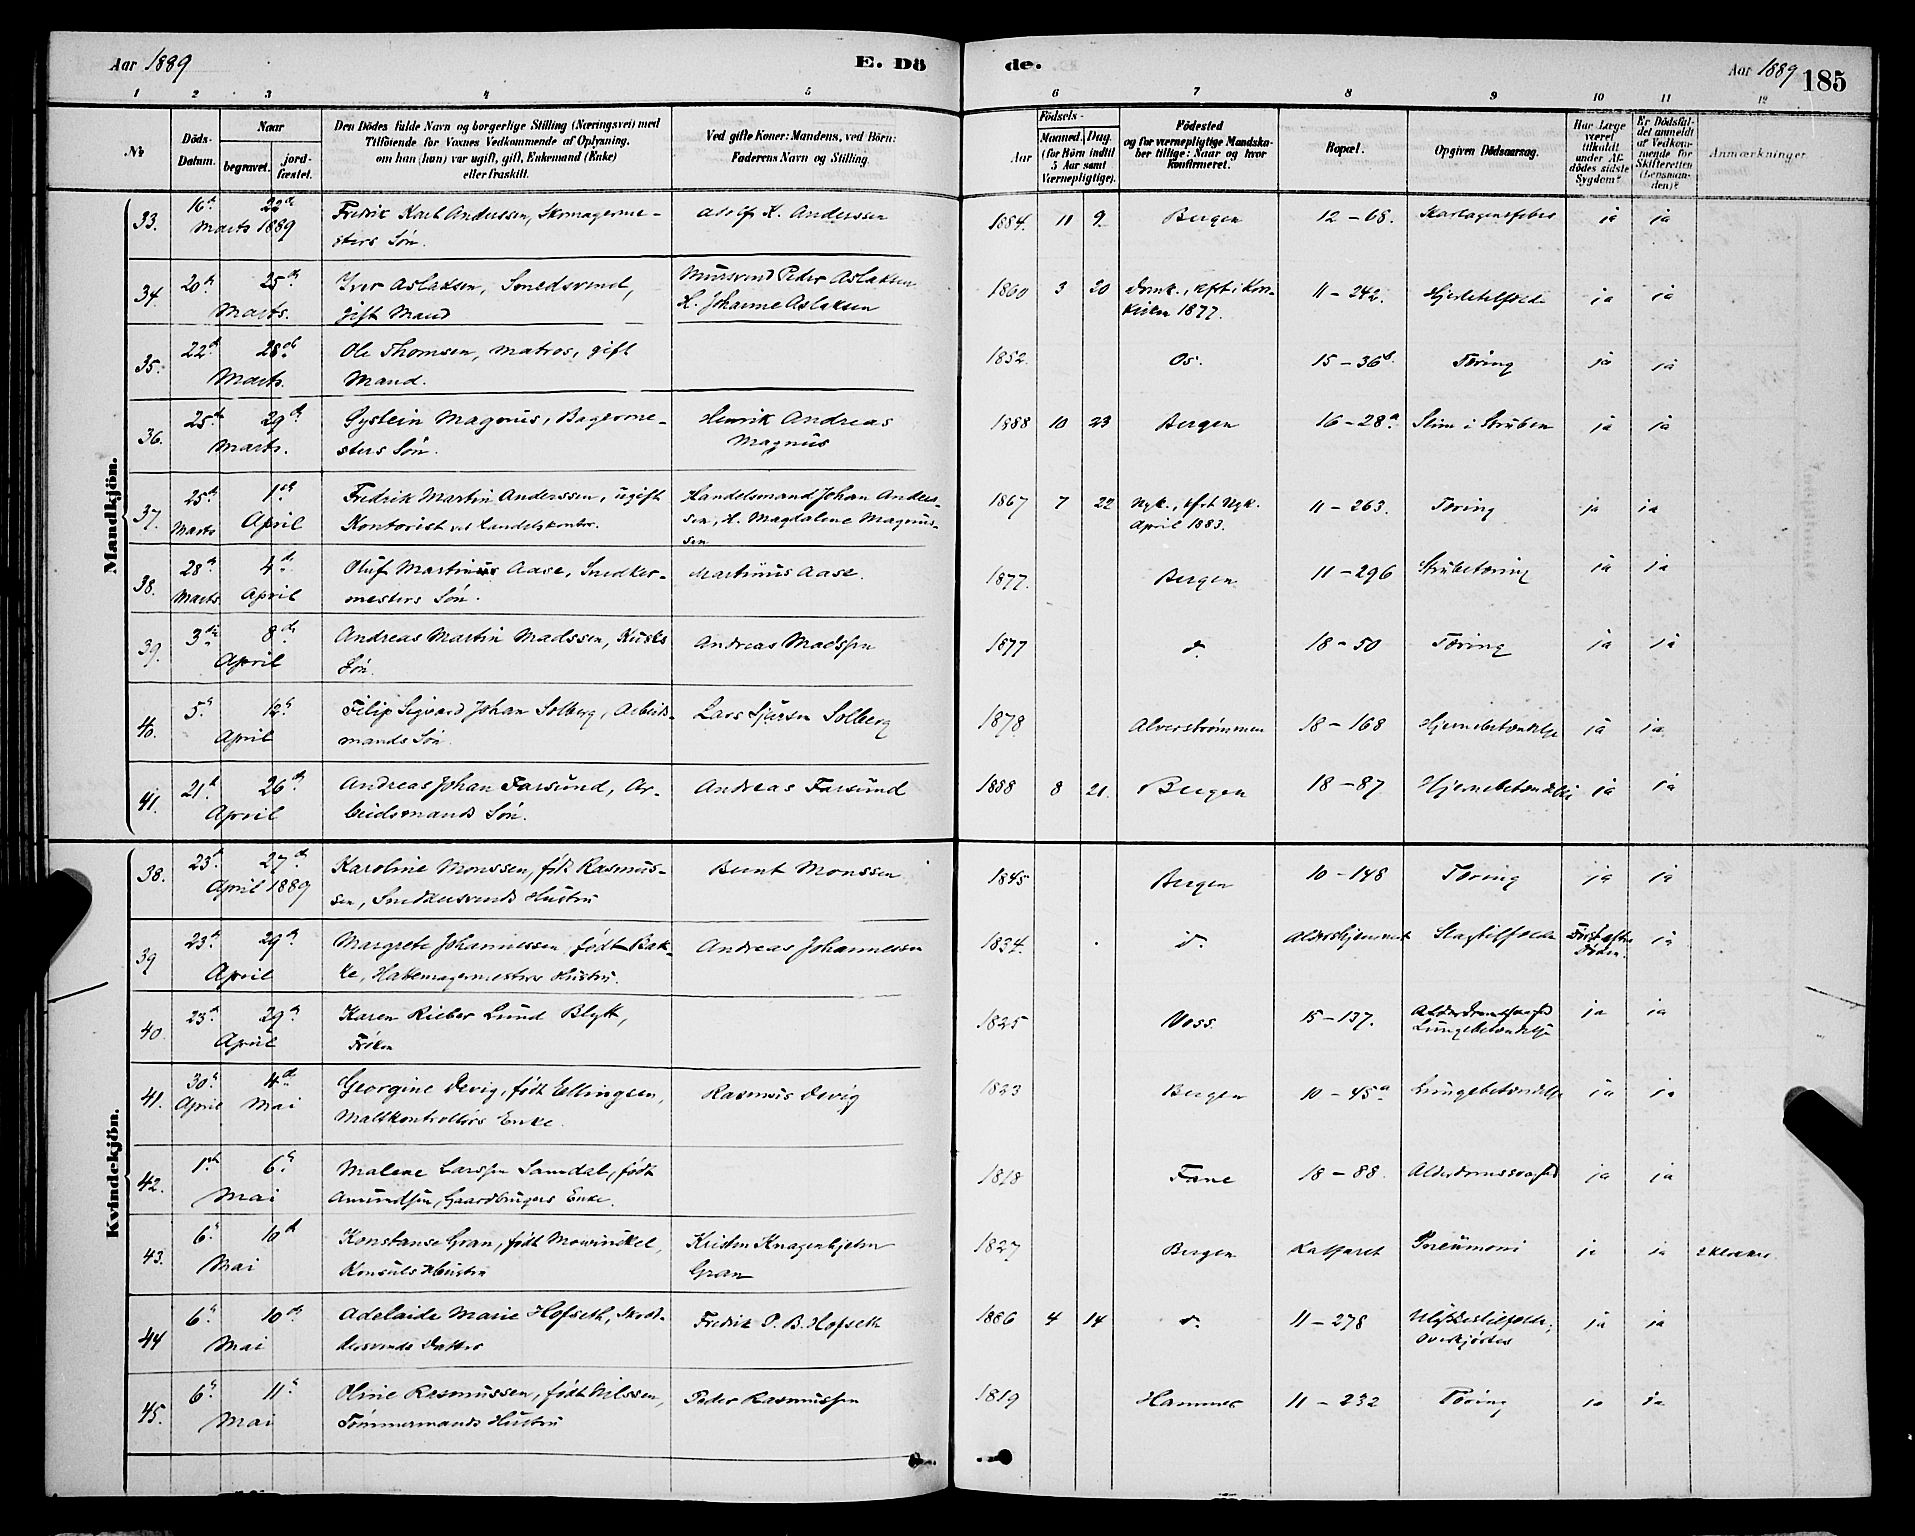 Aar 1889
E. Dö
de.
Aar 1889
185
1 2 3 4 5 6 7 8 9 10 11 12
No
Döds-Datum.
Naar
begravet.
jord-fæstet.
Den Dödes fulde Navn og borgerlige Stilling (Næringsvei) med
Tilföiende for Voxnes Vedkommende af Oplysning,
om han (hun) var ugift, gift, Enkemand (Enke)
eller fraskilt.
Ved gifte Koner: Mandens, ved Börn:
Faderens Navn og Stilling.
Födsels-
Aar
Maaned. Dag.
(for Börn indtil
5 Aar samt
Værnepligtige).
Födested
og for værnepligtige Mandska-
ber tillige: Naar og hvor
konfirmeret.
Bopæl.
Opgiven Dödsaarsag.
Har Læge
været
tilkaldt
under Af-
dödes sidste
Sygdom?
Er Dödsfal-
det anmeldt
af Vedkom-
mende for
Skifteretten
(Lensman-
den)?
Anmærkninger
Mandkjön.
33. 16de 22de Fredrik Karl Anderssen, Skomagerme- Adolf K. Anderssen 1884. 11 9. Bergen 12-68. Skarlagensfeber ja ja
Marts 1889 sters Søn.
34. 20de 25de Iver Aslaksen, Smedsvend, Mursvend Peder Aslaksen 1860 3 20 Domk., kft i Kors- 11-242. Hjertetilfælde ja ja
Marts. gift Mand H. Johanne Aslaksen kirken 1877.
35. 22de 28de Ole Thomsen, Matros, gift 1852. Os. 15-36b. Tæring ja ja
Marts. Mand.
36. 25de 29de Øystein Magnus, Bagerme- Henrik Andreas 1888 10 23 Bergen 16-28a Slim i Struben ja ja
Marts. sters Søn. Magnus
37. 25de 1ste Fredrik Martin Anderssen, ugift Handelsmand Johan Anders- 1867 7 22 Nyk., kft Nyk. 11-263. Tæring ja ja
Marts April Kontorist ved Handelskontor. sen, H. Magdalene Magnus- April 1883.
sen
38. 28de 4de Oluf Martinus Aase, Snedker- Martinus Aase. 1877. Bergen 11-296 Strubetæring ja ja
Marts April mesters Søn.
39. 3die 8de Andreas Martin Madssen, Kusks Andreas Madssen 1877 d. 18-50 Tæring ja ja
April Søn.
40. 5te 12te Filip Sigvard Johan Solberg, Arbeids- Lars Sjursen Solberg 1878 Alverstrømmen 18-168 Hjernebetændelse ja ja
April mands Søn.
41. 21de 26de Andreas Johan Farsund, Ar- Andreas Farsund 1888 8 21. Bergen 18-87 Hjernebetændelse ja ja
April beidsmands Søn.
Kvindekjön.
38. 23de 27de Karoline Monssen, født Rasmus- Bernt Monssen 1845 Bergen 10-148 Tæring ja ja
April 1889 sen, Snedkersvends Hustru
39 23de 29de Margrete Johannessen, født Bak- Andreas Johannessen 1824. d. Aldershjemmet Slagtilfælde Først efter ja
April ke, Hattemagermesters Hustru. Døden.
40. 23de 29de Karen Rieber Lund Blytt, 1825 Voss. 15-137. Alderdomssvaghed ja ja
April Frøken Lungebetændelse
41. 30te 4de Georgine Devig, født Ellingsen, Rasmus Devig 1823 Bergen 10-45a Lungebetændelse ja ja
April Mai Maltkontrollørs Enke.
42. 1ste 6te Malene Larssen Samdal, født 1818 Fane 18-88. Alderdomssvaghed ja ja
Mai Amundsen, Gaardbrugers Enke.
43. 6te 10de Konstanse Gran, født Mowinckel, Kristen Knagenhjelm 1827 Bergen Kalfaret Pneumoni ja ja 2 Klokker.
Mai Konsuls Hustru Gran
44 6te 10de Adelaide Marie Hofseth, Skræd- Fredrik P. B. Hofseth 1886 4 14 d. 11-278 Ulykkestilfælde; ja ja
Mai dersvends Datter overkjørtes
45. 6te 11te Oline Rasmussen, født Nilssen, Peder Rasmussen 1819 Hammer 11-232 Tæring ja ja
Mai Tømmermands Hustru